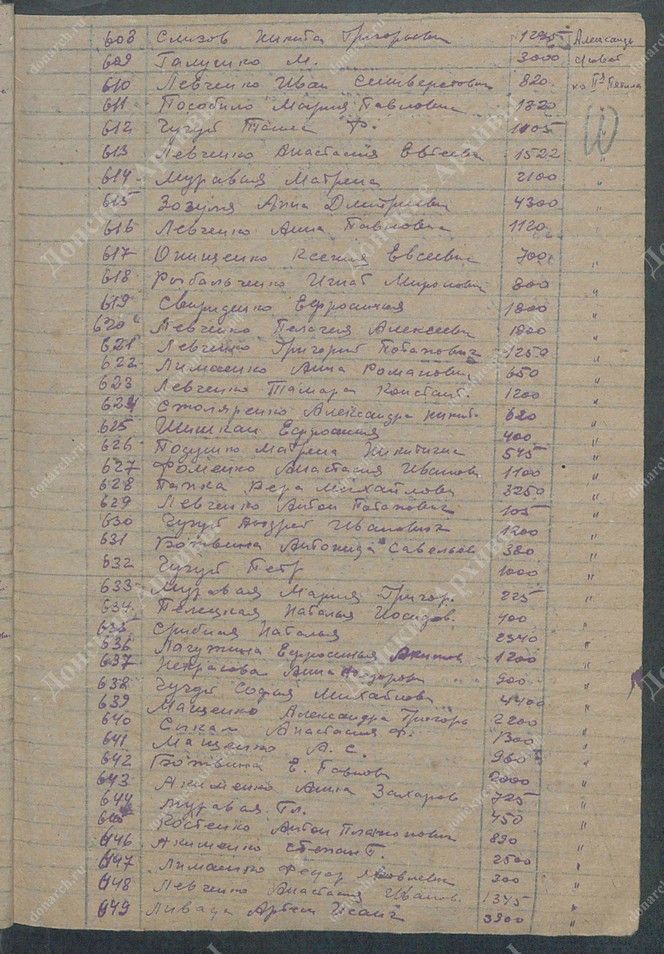 608 Слизов Никита Григорьевич 1245 Александр
609 Галушко М. 3000 с/совет
610 Левченко Иван Сильверстович 820
611 Пособило Мария Павловна 1820
612 Чугуй Ф. 1005
613 Левченко Анастасия Евсеевн 1522 "
614 Муравая Матрена 2100 "
615 Зозуля Анна Дмитриевн 4300 "
616 Левченко Анна Павловна 1120 "
617 Онищенко Ксения Евсеевн 700 "
618 Рыбальченко Игнат Миронович 800 "
619 Свириденко Ефросиния 1800 "
620 Левченко Пелагея Алексеевн 1800 "
621 Левченко Григорий Потапович 1250 "
622 Лиманенко Анна Романовн 650 "
623 Левченко Тамара Констант. 1200 "
624 Столяренко Александра Никит. 620 "
625 Шишкан Ефросиния 400 "
626 Матрена Никитична 545 "
627 Фоменко Анастасия Ивановн 1100 "
628 Вера Михайловн 3250 "
629 Левченко Антон Потапович 105 "
630 Чугуй Андрей Иванович 1200 "
631 Ботвина Антонида Савельев 380 "
632 Чугуй Петр 1000 "
633 Муравая Мария Григор. 225 "
634 Наталья 400 "
635 Наталья 2340 "
636 Ефросиния 1200 "
637 Некрасова Анна 900 "
638 Чугуй София Михайловн 4400 "
639 Мащенко Александра Григорь 2200 "
640 Анастасия Ф. 1300 "
641 Мащенко А. С. 960 "
642 Ботвина Е. Павлов 2000 "
643 Акименко Анна Захаров 725 "
644 Муравая Гл. 450 "
645 Костенко Антон Платонович 890 "
646 Акименко Степан 2500 "
647 Лиманенко Федор Яковлевич 300 "
648 Левченко Анастасия Иванов. 1345 "
649 Ливада Артем Исаич 3900 "
Донские Архивы
donarch.ru